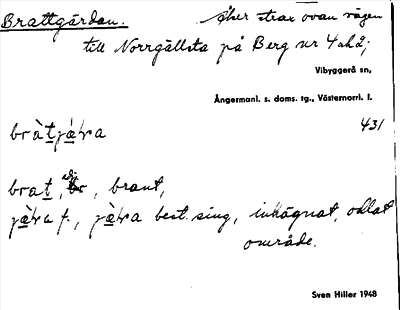 Brattgärdan. Åker strax ovan vägen
till Norrgällsta på Berg nr 4 ah 2;
Vibyggerå sn,
Ångermanl. s. doms. tg., Västernorrl. l.
431
brat, adj., brant,
f., best. sing, inhägnat, odlat
område.
Sven Hiller 1948